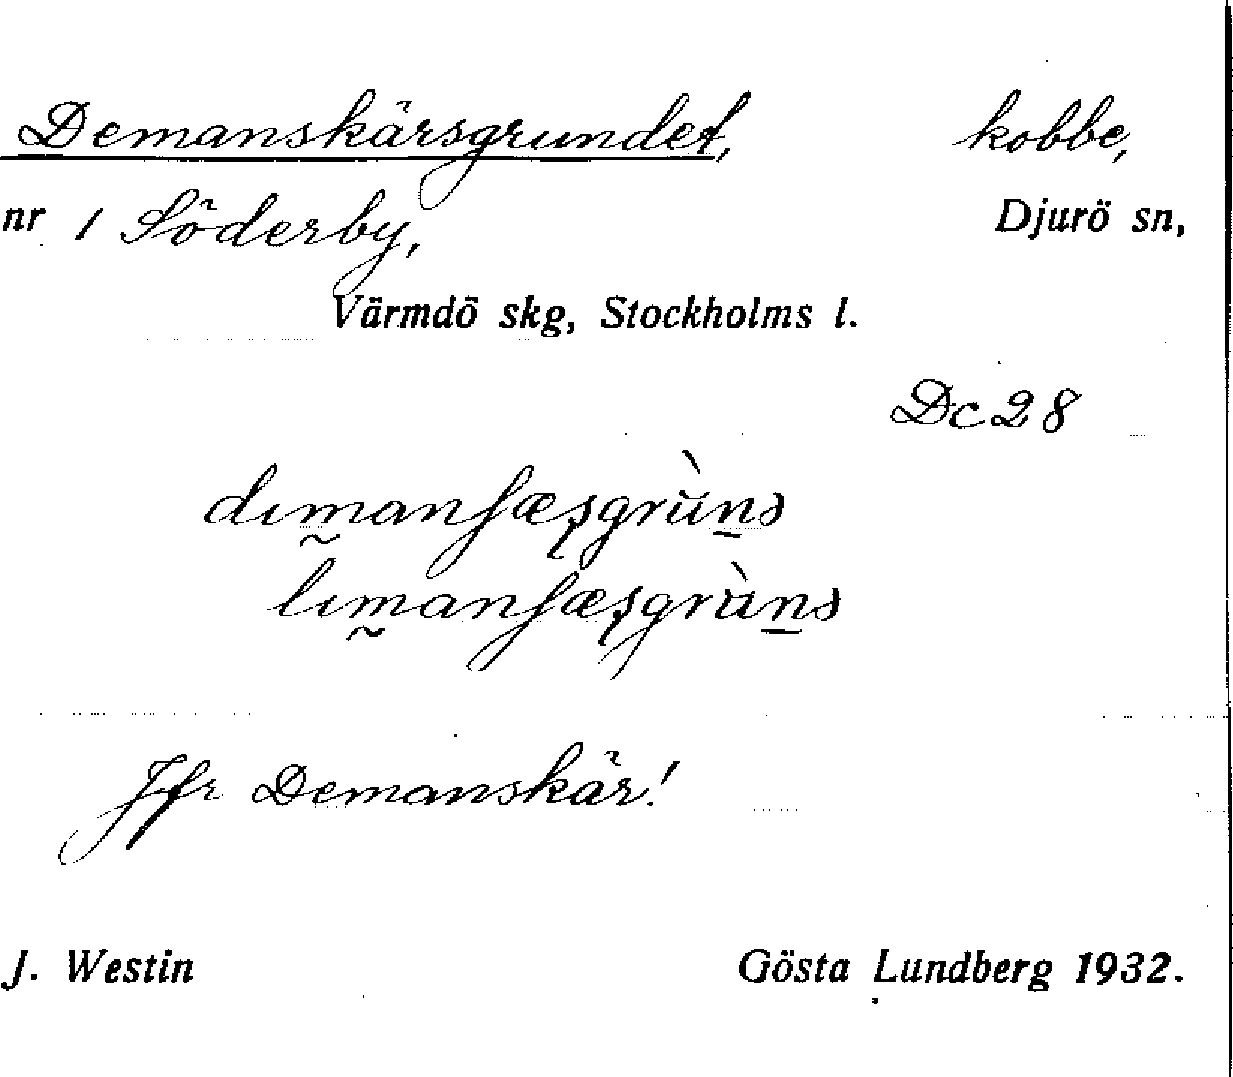 Demanskärsgrundet, kobbe,
nr 1 Söderby, Djurö sn,
Värmdö skg, Stockholms l.
Dc28
Jfr Demanskär!
J. Westin Gösta Lundberg 1932.